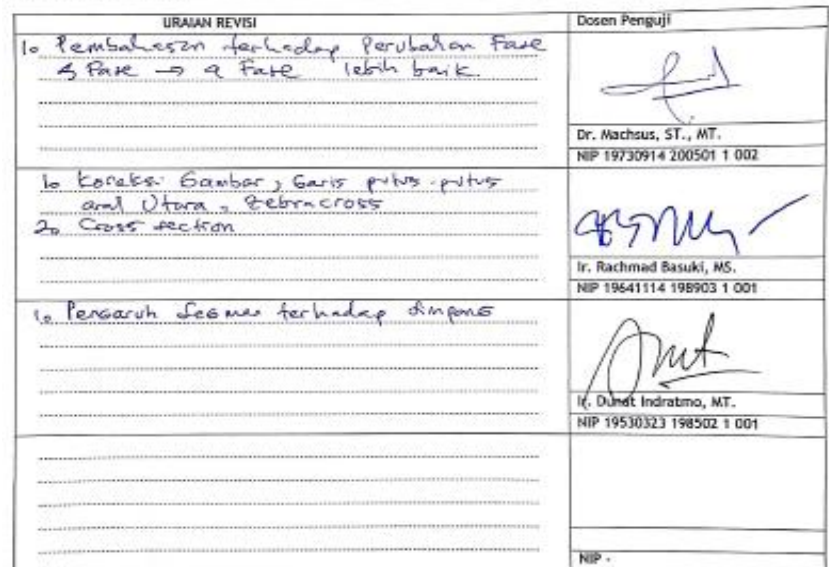 URAIAN REVISI
Dosen Penguji
1. Pembahasan terhadap Perubahan Fase
3 Fase → 4 Fase lebih baik.
Dr. Machsus, ST., MT.
NIP 19730914 200501 1 002
1. Koreksi Gambar, Garis putus-putus
arah Utara, Zebracross
2. Cross section
Ir. Rachmad Basuki, MS.
NIP 19641114 198903 1 001
1. Pengaruh Segmen terhadap simpang
Ir. Dunat Indratmo, MT.
NIP 19530323 198502 1 001
NIP -